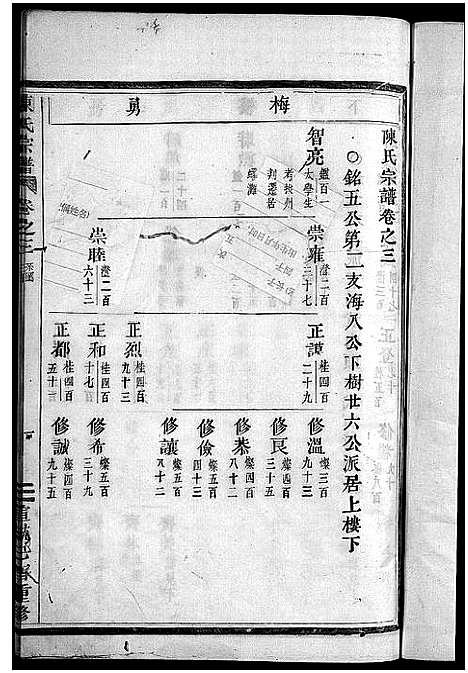 陳氏宗譜卷之三
○銘五公第二支海八公下樹廿六公派居上樓下
梅
勇
智亮
鑑百一
太學生
考授州
判遷居
崇雍
澄二百
三十七
崇睦
澄二百
六十三
正諄
桂四百
二十九
正烈
桂四百
九十三
正和
桂四百
十七
正都
桂四百
五十三
修溫
燦三百
九十三
修良
燦四百
三十
修恭
燦四百
八十二
修儉
燦五百
四十三
修讓
燦五百
八十二
修希
燦四百
三十九
修誠
燦四百
九十五
陳氏宗譜
卷之三
重修